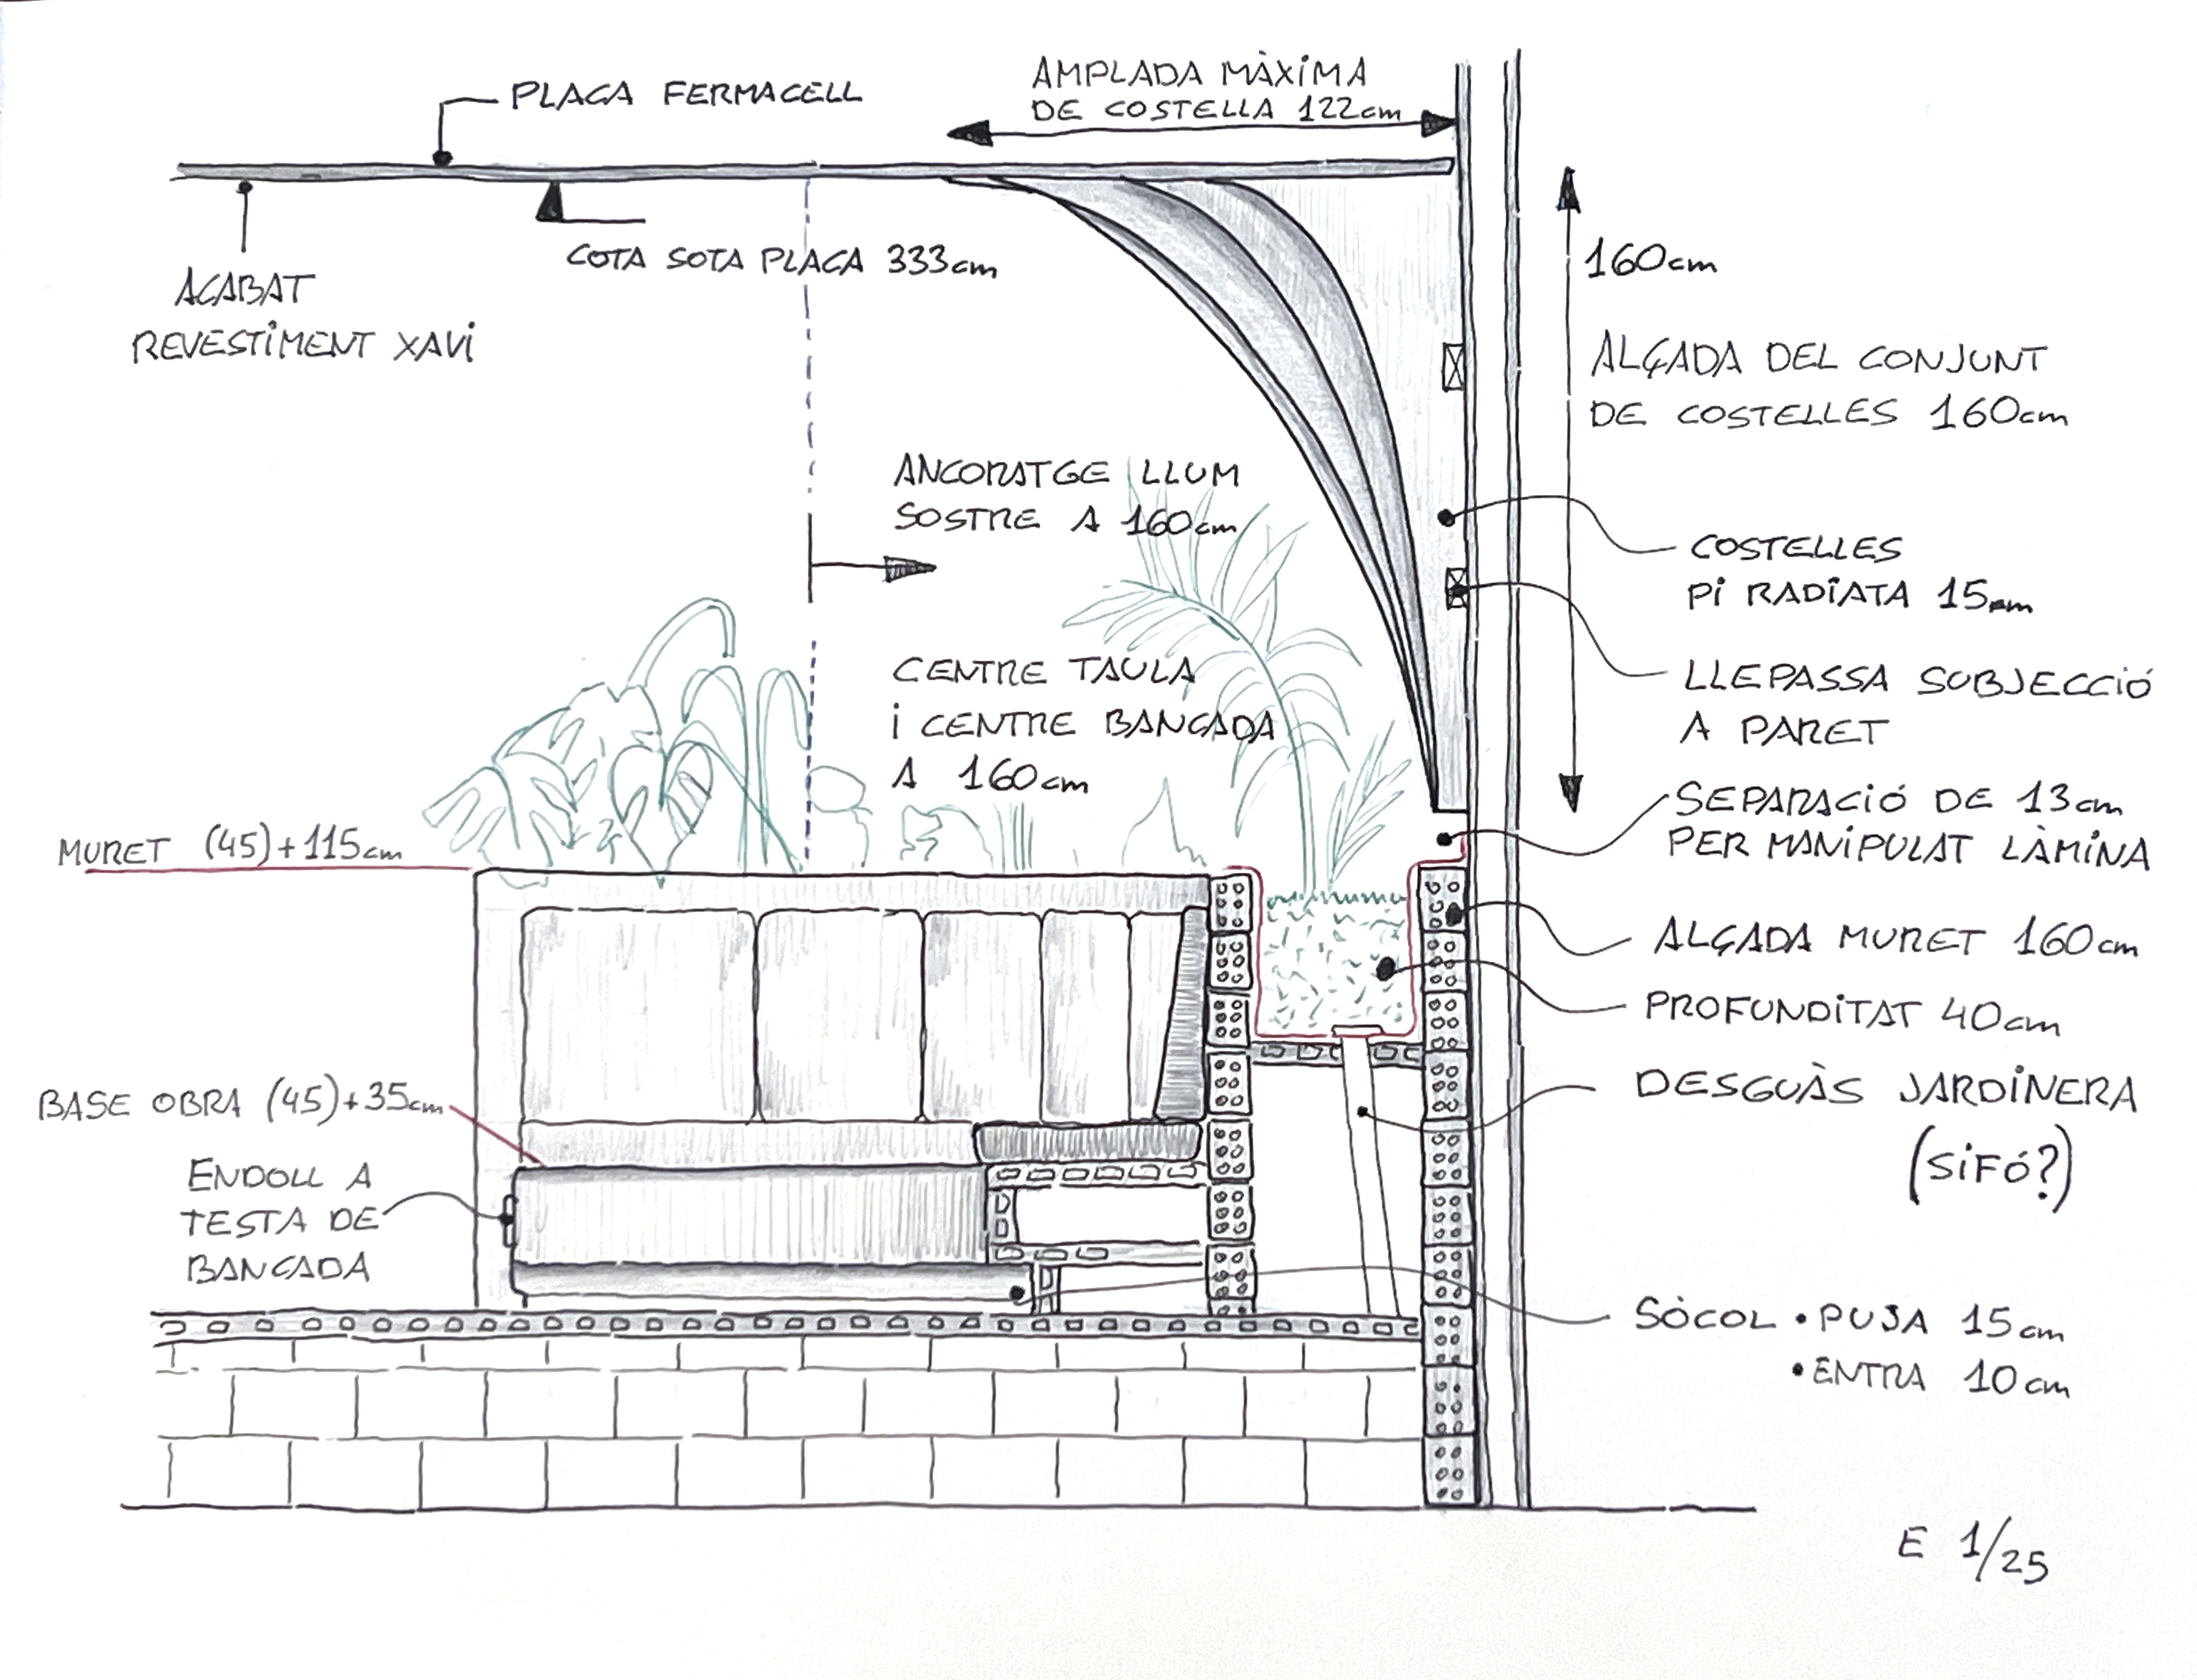 PLACA FERMACELL
AMPLADA MÀXIMA
DE COSTELLA 122cm
COTA SOTA PLACA 333cm
ACABAT
REVESTIMENT XAVI
160cm
ALÇADA DEL CONJUNT
DE COSTELLES 160cm
ANCORATGE LLUM
SOSTRE A 160cm
COSTELLES
PI RADIATA 15mm
CENTRE TAULA
I CENTRE BANCADA
A 160cm
LLEPASSA SUBJECCIÓ
A PARET
SEPARACIÓ DE 13cm
PER MANIPULAT LÀMINA
MURET (45)+115cm
ALÇADA MURET 160cm
PROFUNDITAT 40cm
BASE OBRA (45)+35cm
DESGUÀS JARDINERA
(SIFÓ?)
ENDOLL A
TESTA DE
BANCADA
SÒCOL • PUJA 15cm
• ENTRA 10cm
E 1/25